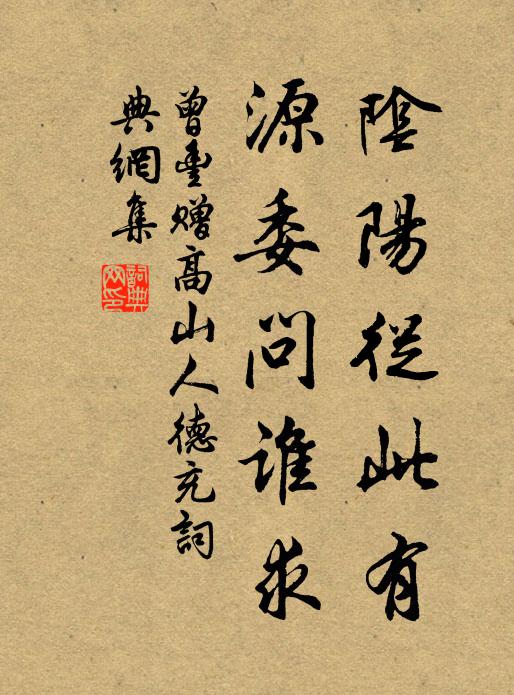 陰陽從此有
源委問誰求
曾豐贈高山人德充詞
典網集
詞典網印